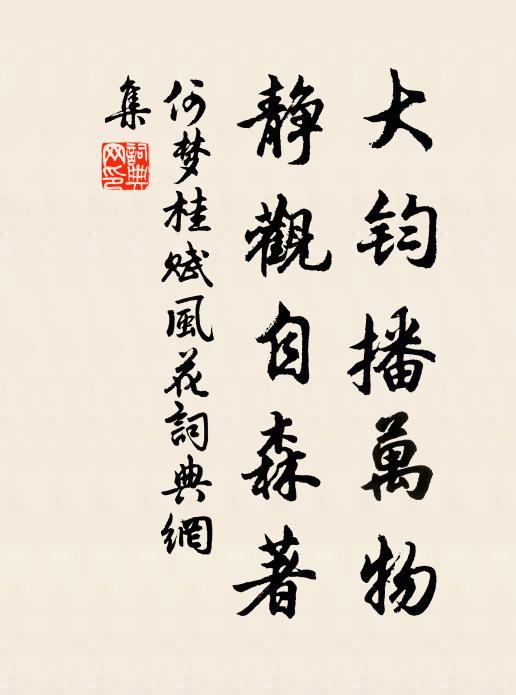 大鈞播萬物
靜觀自森著
何梦桂赋風花詞典網
集
詞典
网印